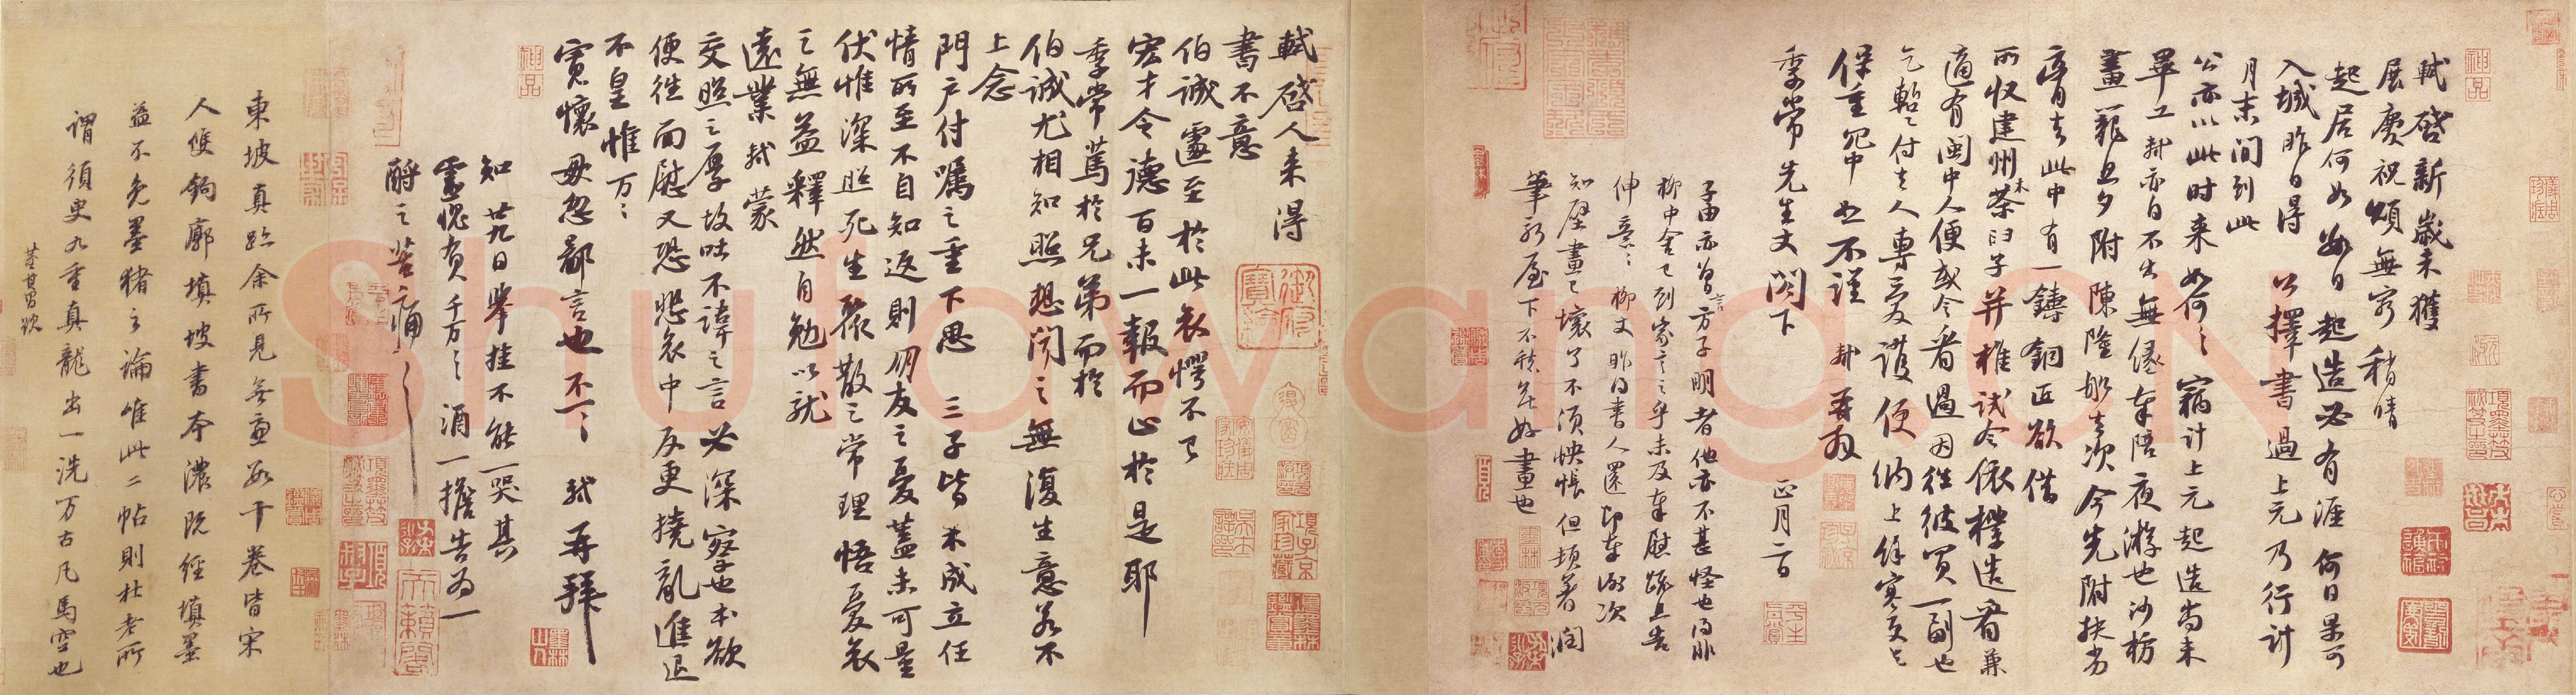 軾啓新歲未獲
展慶祝頌無窮稍晴
起居何如數日起造必有涯何日果可
入城昨日得公擇書過上元乃行計
月末間到此
公亦以此时来如何何竊计上元起造尚未
畢工軾亦自不出無緣奉陪夜游也沙枋
畫籠旦夕附陳隆船去次今先附扶劣
膏去此中有一鑄銅匠欲借
所收建州木茶臼子并椎試令依樣造看兼
適有閩中人便或令看過因往彼買一副也
乞暫付去人專爱護便納上餘寒更乞
保重冗中恕不謹軾再拜
季常先生丈閤下正月二日
子由亦曾言方子明者他亦不甚怪也得非
柳中舍已到家言之乎未及奉慰疏且告
伸意意柳丈昨得書人還即奉謝次
知壁畫已壞了不須怏悵但頓著潤
筆新屋下不愁無好畫也
軾啓人来得
書不意
伯誠遽至於此哀愕不已
宏才令德百未一報而止於是耶
季常篤於兄弟而於
伯誠尤相知照想聞之無復生意若不
上念
門户付囑之重下思三子皆未成立任
情所至不自知返則朋友之憂蓋未可量
伏惟深照死生聚散之常理悟憂哀
之無益釋然自勉以就
遠業軾蒙
交照之厚故吐不諱之言必深察也本欲
便往面慰又恐悲哀中反更撓亂進退
不皇惟萬萬
寛懷毋忽鄙言也不一一軾再拜
知廿九日舉挂不能一哭其
靈愧負千万千万酒一擔告為一
酹之苦痛苦痛
東坡真跡余所見無慮數十卷皆宋
人雙鉤廓填坡書本濃既經填墨
益不免墨豬之論唯此二帖則杜老所
謂須臾九重真龍出一洗万古凡馬空也
董其昌跋
Shufawang.CN